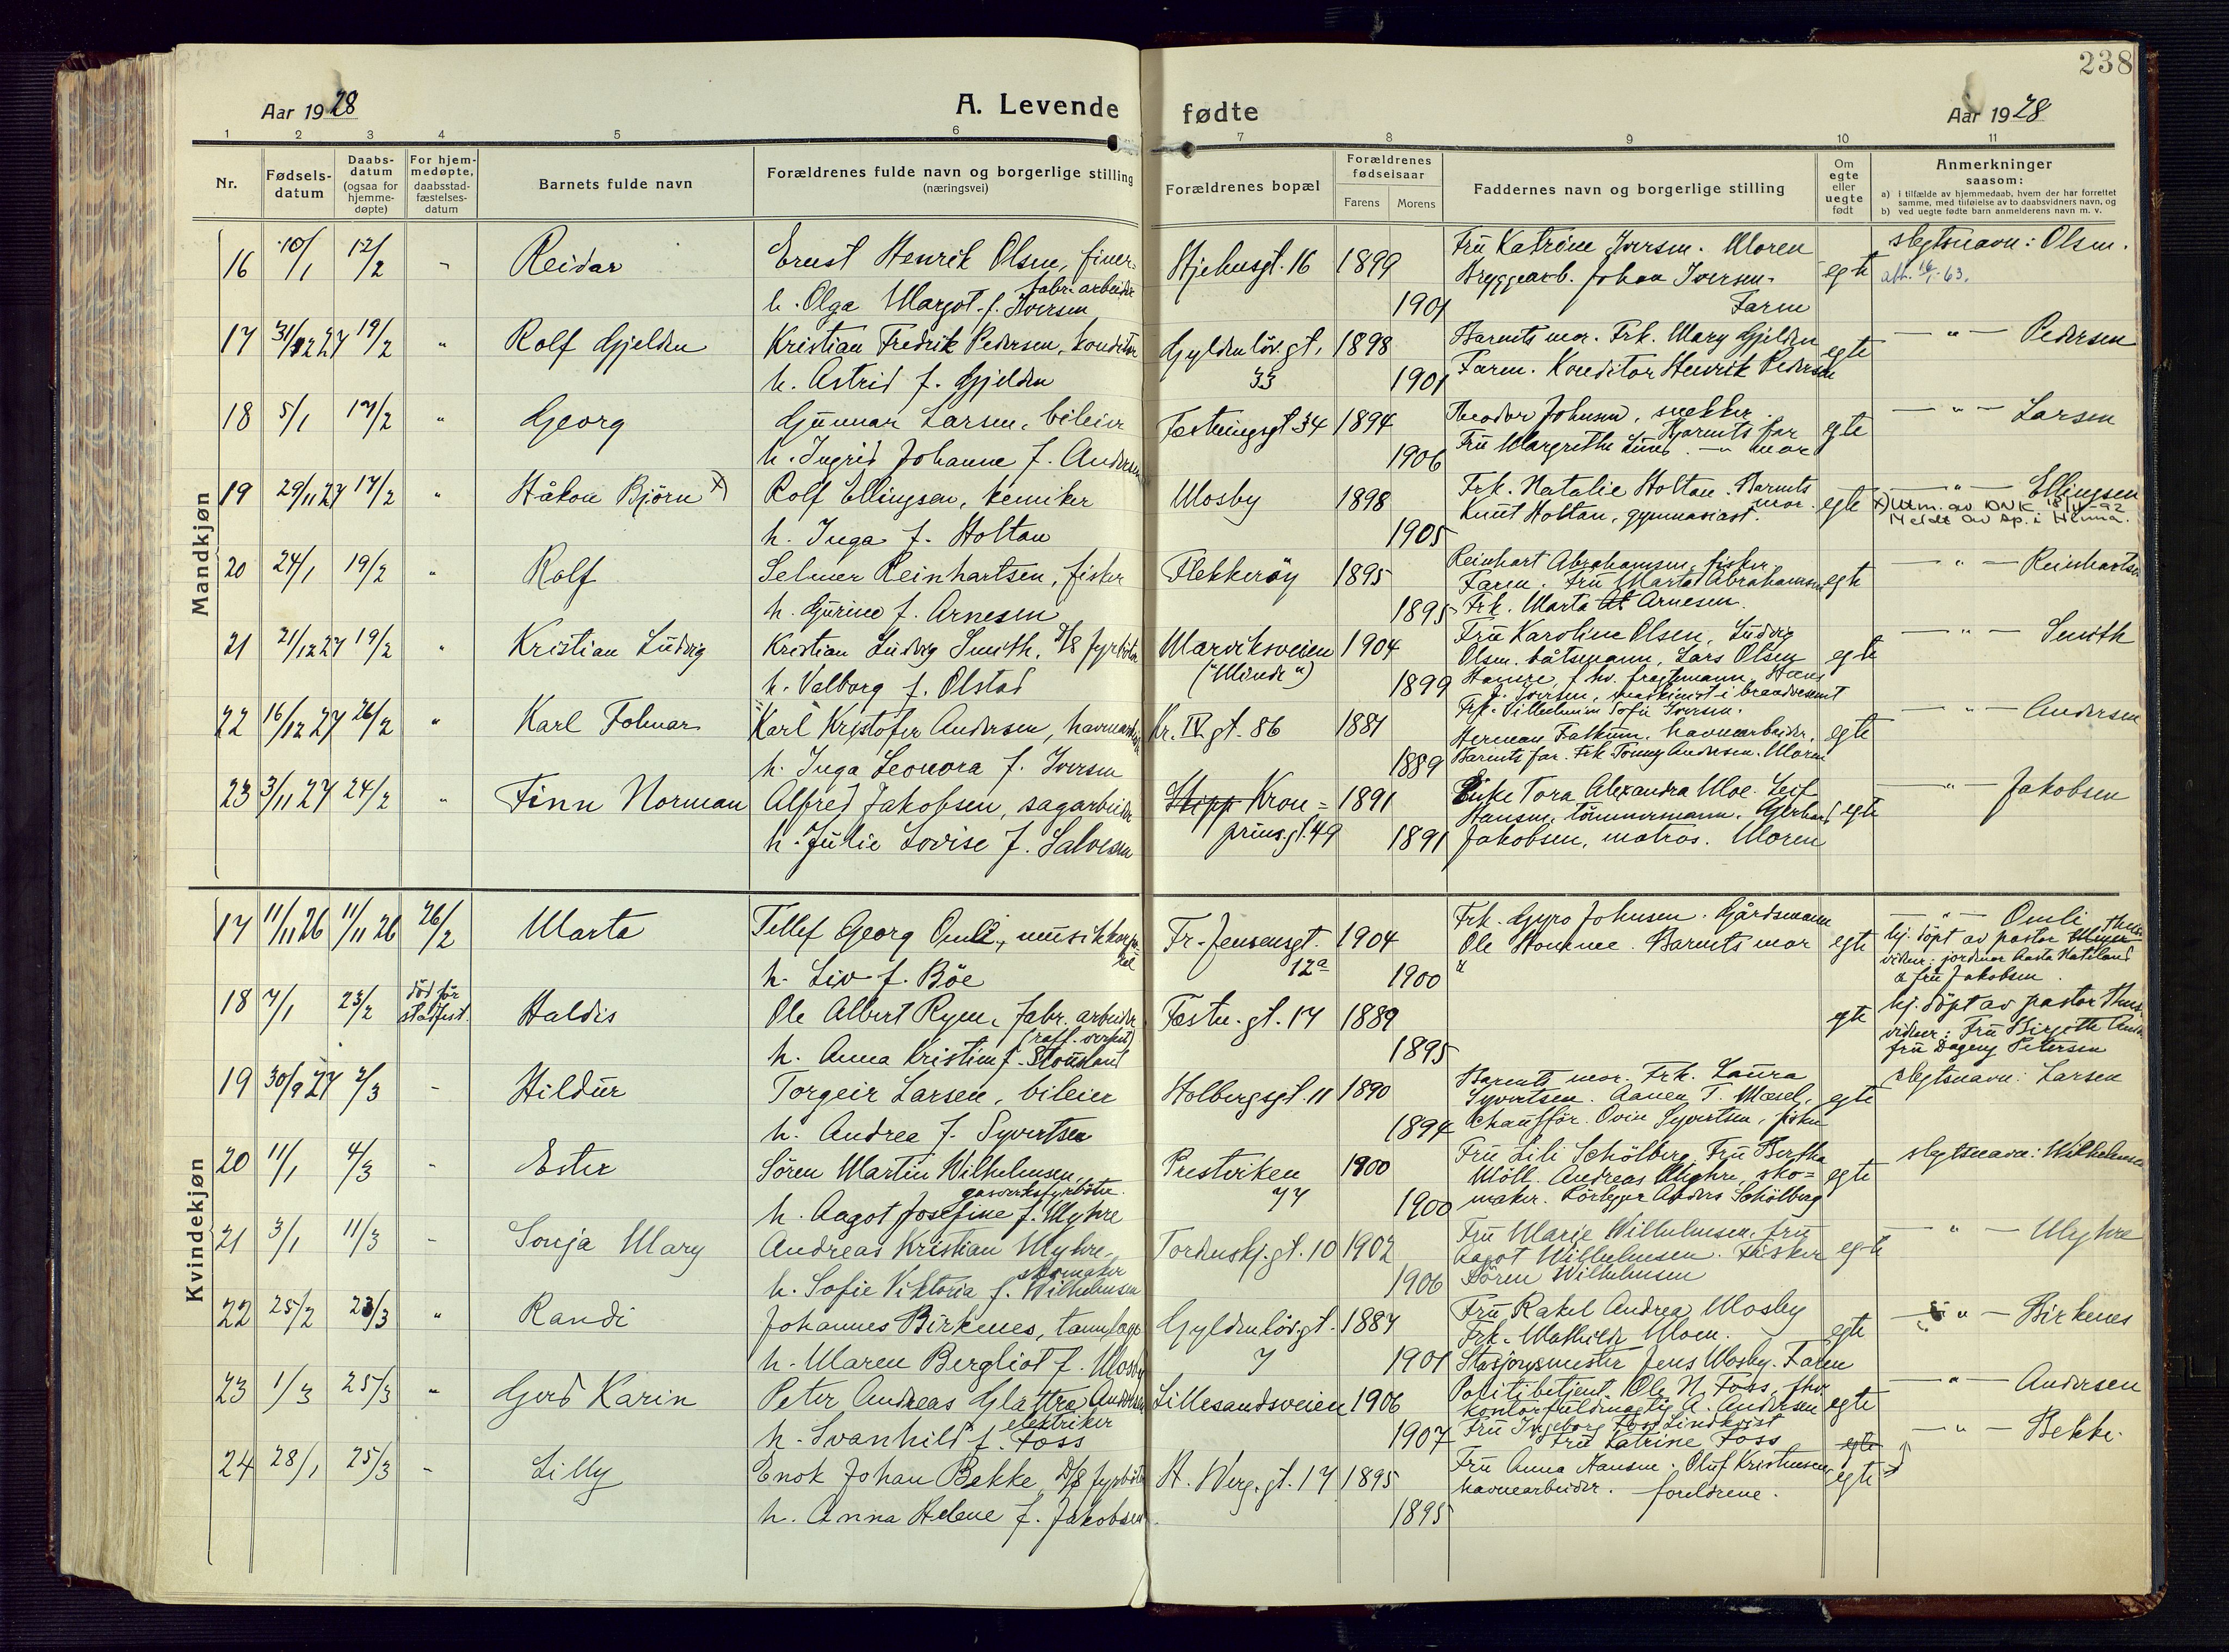 238
Aar 1928
A. Levende fødte
Aar 1928
1 2 3 4 5 6 7 8 9 10 11
Nr.
Fødsels-
datum
Daabs-
datum
(ogsaa for
hjemme-
døpte)
For hjem-
medøpte,
daabsstad-
fæstelses-
datum
Barnets fulde navn
Forældrenes fulde navn og borgerlige stilling
(næringsvei)
Forældrenes bopæl
Forældrenes
fødselsaar
Farens Morens
Faddernes navn og borgerlige stilling
Om
egte
eller
uegte
født
Anmerkninger
saasom:
a) i tilfælde av hjemmedaab, hvem der har forrettet
samme, med tilføielse av to daabsvidners navn, og
b) ved uegte fødte barn anmelderens navn m. v.
Mandkjøn
16 10/1 12/2 - Reidar
Ernst Henrik Olsen, finer-
fabr. arbeider
h. Olga Margot f. Iversen
1899
1901
Fru Katrine Iversen. Moren
Bryggearb. Johan Iversen.
Faren
egte
slegtsnavn: Olsen.
17 31/12 27 19/2 " Rolf Gjelden
Kristian Fredrik Pedersen, konditor
h. Astrid f. Gjelden
Gyldenløv.gt.
33
1898
1901
Barnets mor. Frk. Mary Gjelden
Faren. Konditor Henrik Pedersen
egte
— " — Pedersen
18 5/1 17/2 " Georg
Gunnar Larsen, bileier
h. Ingrid Johanne f. Andersen
Festningsgt 34
1894
1906
Theodor Johnsen, snekker.
Barnets far
Fru Margrethe Lund. — " — mor
egte
— " — Larsen
19 29/11 27 17/2 " Håkon Bjørn x)
Rolf Ellingsen, kemiker
h. Inga f. Holtan
Mosby
1898
1905
Frk. Natalie Holtan. Barnets
mor.
Knut Holtan, gymnasiast.
egte
— " — Ellingsen
x) Utm. av DNK
Meldt av sp. i
20 24/1 19/2 " Rolf
Selmer Reinhartsen, fisker
h. Gurine f. Arnesen
Flekkerøy
1895
1895
Reinhart Abrahamsen, fisker
Faren. Fru Marta Abrahamsen
Frk. Marta Arnesen.
egte
— " — Reinhartsen
21 21/12 27 19/2 " Kristian Ludvig
Kristian Ludvig Smith, D/S fyrbøter
h. Valborg f. Olstad
Marviksveien
("Minde")
1904
1899
Fru Karoline Olsen, Ludvig
Olsen. båtsmann, Lars Olsen
egte
— " — Smith
22 16/12 27 26/2 " Karl Folmar
Karl Kristofer Andersen, havnearbeider
h. Inga Leonora f. Iversen
Kr. IV gt. 86
1881
1889
Frk. Vilhelmine Sofie Iversen.
Herman Falkum. havnearbeider.
Barnets far. Frk. Tonny Andersen. Moren
egte
— " — Andersen
23 3/11 27 24/2 " Finn Norman
Alfred Jakobsen, sagarbeider
h. Julie Lovise f. Salvesen
Skipp Kron=
prins.gt. 49
1891
1891
Enke Tora Alexandra Moe. Leif
Hansen, tømmermann. Gerhard
Jakobsen, matros. Moren
egte
— " — Jakobsen
Kvindekjøn
17 11/11 26 11/11 26 26/2 Marta
Tellef Georg Omli, musikkorpo-
ral
h. Liv f. Bøe
Fr. Jensensgt.
12a
1904
1900
Frk. Gyro Johnsen. Gårdsmann
Ole Homme. Barnets mor
egte
— " — Omli
hj. døpt av pastor
& fru Jakobsen.
18 7/1 23/2 død før
stadfest. Haldis
Ole Albert Ryen, fabr. arbeider
(raff. verket)
h. Anna Kristine f.
Festn. gt. 17
1889
1895
egte
hj. døpt av pastor
vidner: Fru Birgitte
fru Dagny Petersen
19 30/9 27 2/3 - Hildur
Torgeir Larsen, bileier
h. Andrea f. Syvertsen
Holbergsgt. 11
1890
1894
Barnets mor. Frk. Laura
Syvertsen. Aanen T. Mæsel,
Chauffør. Ovin Syvertsen, fisker
egte
slegtsnavn: Larsen
20 11/1 4/3 - Ester
Søren Martin Wilhelmsen,
gasverksfyrbøter.
h. Aagot Josefine f. Myhre
77
1900
1900
Fru Lili Schölberg. Fru Bertha
Möll. Andreas Myhre, sko=
maker. Rörlegger Anders Schölberg
egte
slegtsnavn: Wilhelmsen
21 3/1 11/3 - Sonja Mary
Andreas Kristian Myhre,
skomaker
h. Sofie Viktoria f. Wilhelmsen
Tordenskj.gt. 10
1902
1906
Fru Marie Wilhelmsen, fru
Aagot Wilhelmsen. Fisker
Søren Wilhelmsen
egte
— " — Myhre
22 25/2 23/3 " Randi
Johannes Birkenes, tannlæge
h. Maren Bergliot f. Mosby
Gyldenløv.gt.
7
1887
1901
Fru Rakel Andrea Mosby
Frk. Mathilde Moen.
Stasjonsmester Jens Mosby. Faren
egte
— " — Birkenes
23 1/3 25/3 " Gerd Karin
Peter Andreas Glattre Andersen
elektriker
h. Svanhild f. Foss
Lillesandsveien
1906
1907
Politibetjent Ole N. Foss, fhv.
kontorfuldmægtig A. Andersen
Fru Ingeborg Foss Lindkvist
Fru Katrine Foss
egte
— " — Andersen
24 28/1 25/3 - Lilly
Enok Johan Bekke, D/S fyrbøter
h. Anna Helene f. Jakobsen
H. Werg. gt. 17
1895
1895
Fru Anna Hansen. Oluf Kristensen,
havnearbeider. foreldrene.
egte
egte
— " — Bekke.